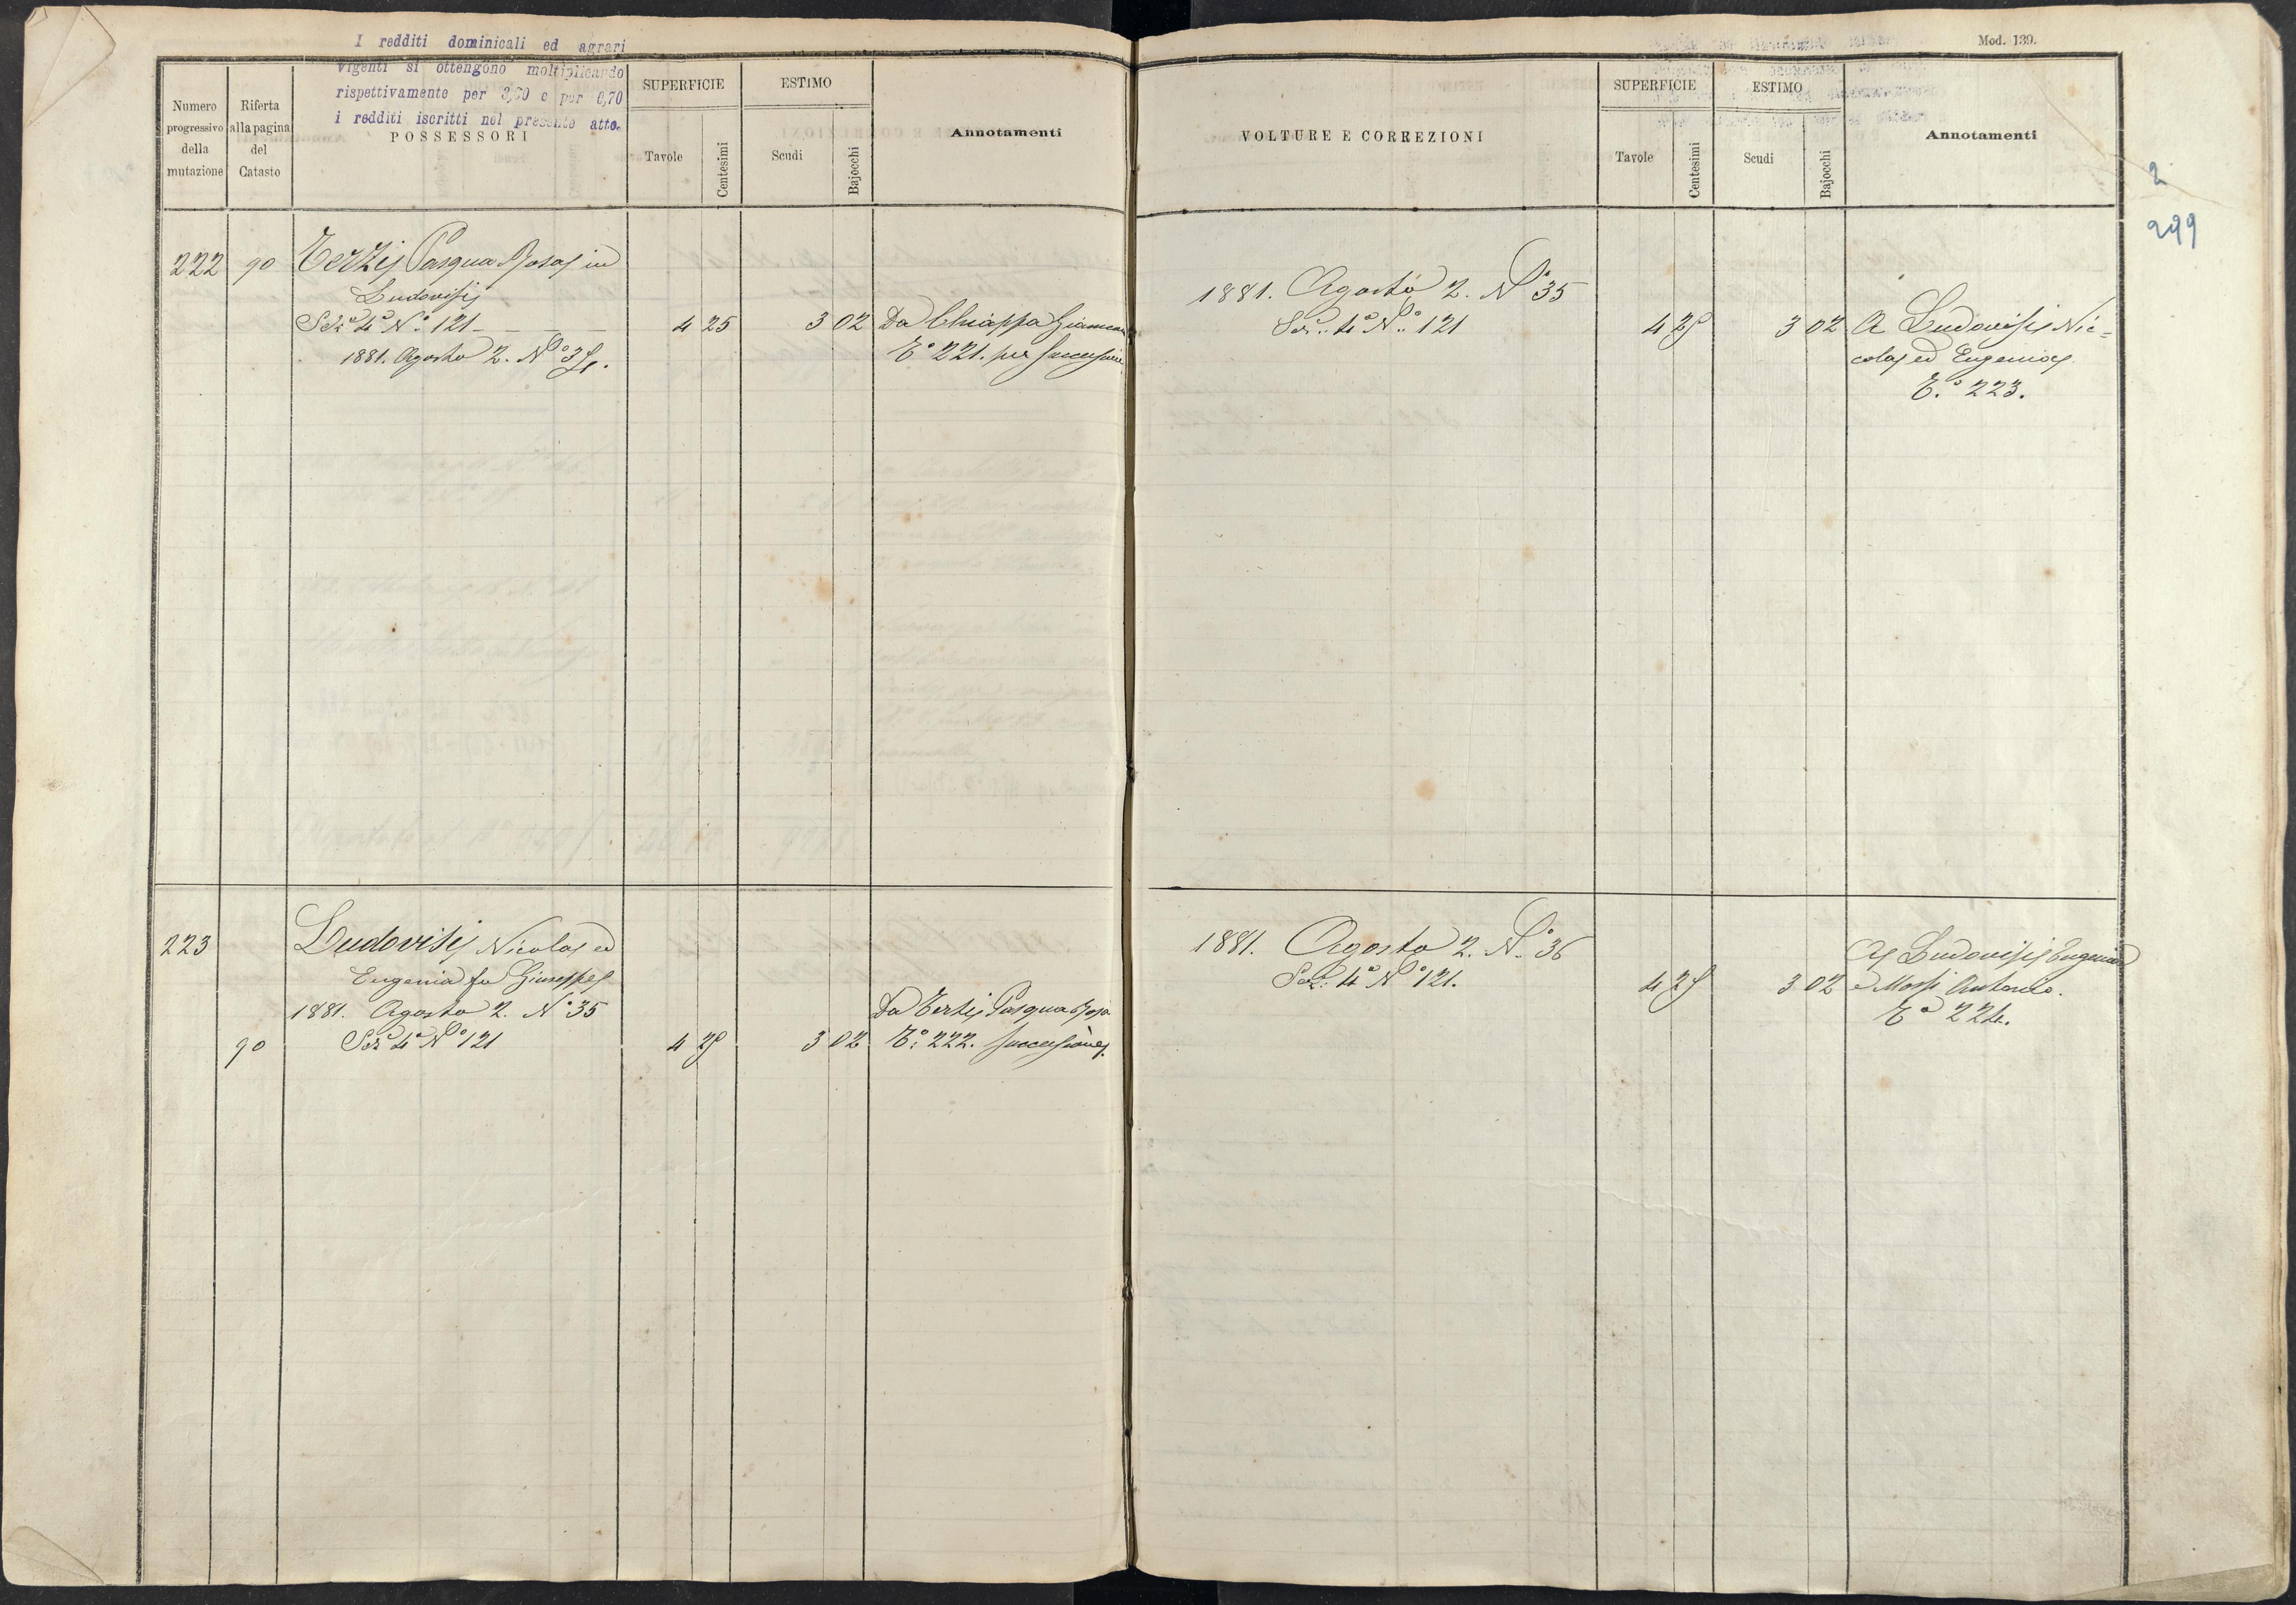 I redditi dominicali ed agrari
vigenti si ottengono moltiplicando
rispettivamente per 3,60 e per 6,70
i redditi iscritti nel presente atto.
Numero progressivo della mutazione
Riferta alla pagina del Catasto
POSSESSORI
SUPERFICIE
Tavole
Centesimi
ESTIMO
Scudi
Bajocchi
Annotamenti
222 90 Terzij Pasqua Rosa in
Ludovisij
Sez.e 4a No. 121 4 25 3 02 Da Chiappa
1881. Agosto 2. No 34. To 221. per successione
223 Ludovisij Nicola ed
Eugenia fu Giuseppe
1881. Agosto 2. No 35 Da Terzij Pasqua Rosa
90 Sez. 4a No 121 4 25 3 02 To: 222. successione
Mod. 139.
VOLTURE E CORREZIONI
SUPERFICIE
Tavole
Centesimi
ESTIMO
Scudi
Bajocchi
Annotamenti
2
299
1881. Agosto 2. No 35
Sez. 4a No. 121 4 25 3 02 A Ludovisij Nic=
cola ed Eugenia
To. 223.
1881. Agosto 2. No. 36 A Ludovisij Eugenia
Sez. 4a No 121. 4 25 3 02 e Mossi Antonio.
To 224.